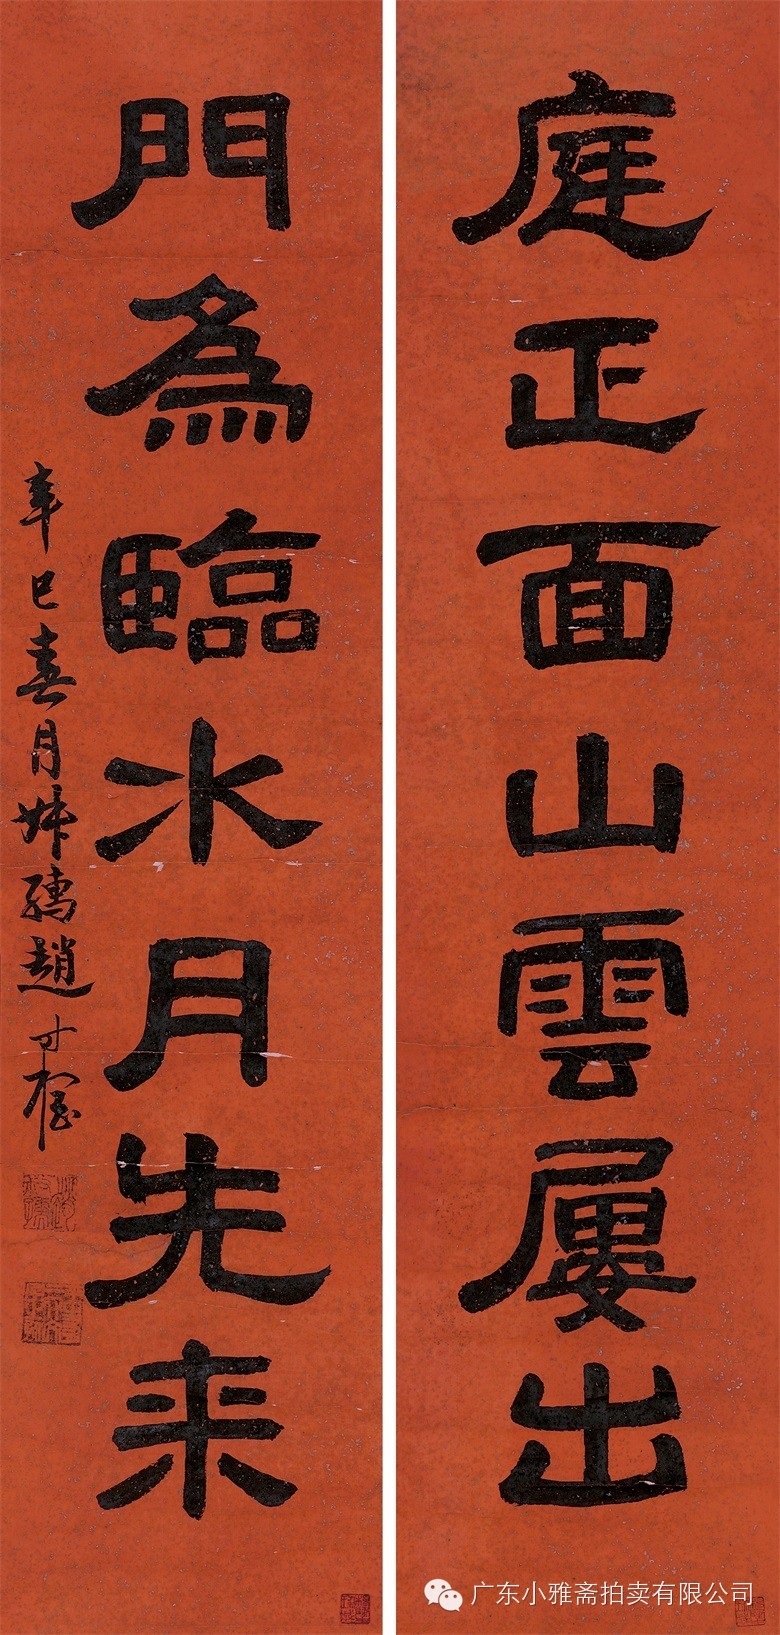 庭正面山雲屢出
門為臨水月先来
辛巳春月
趙
广东小雅斋拍卖有限公司